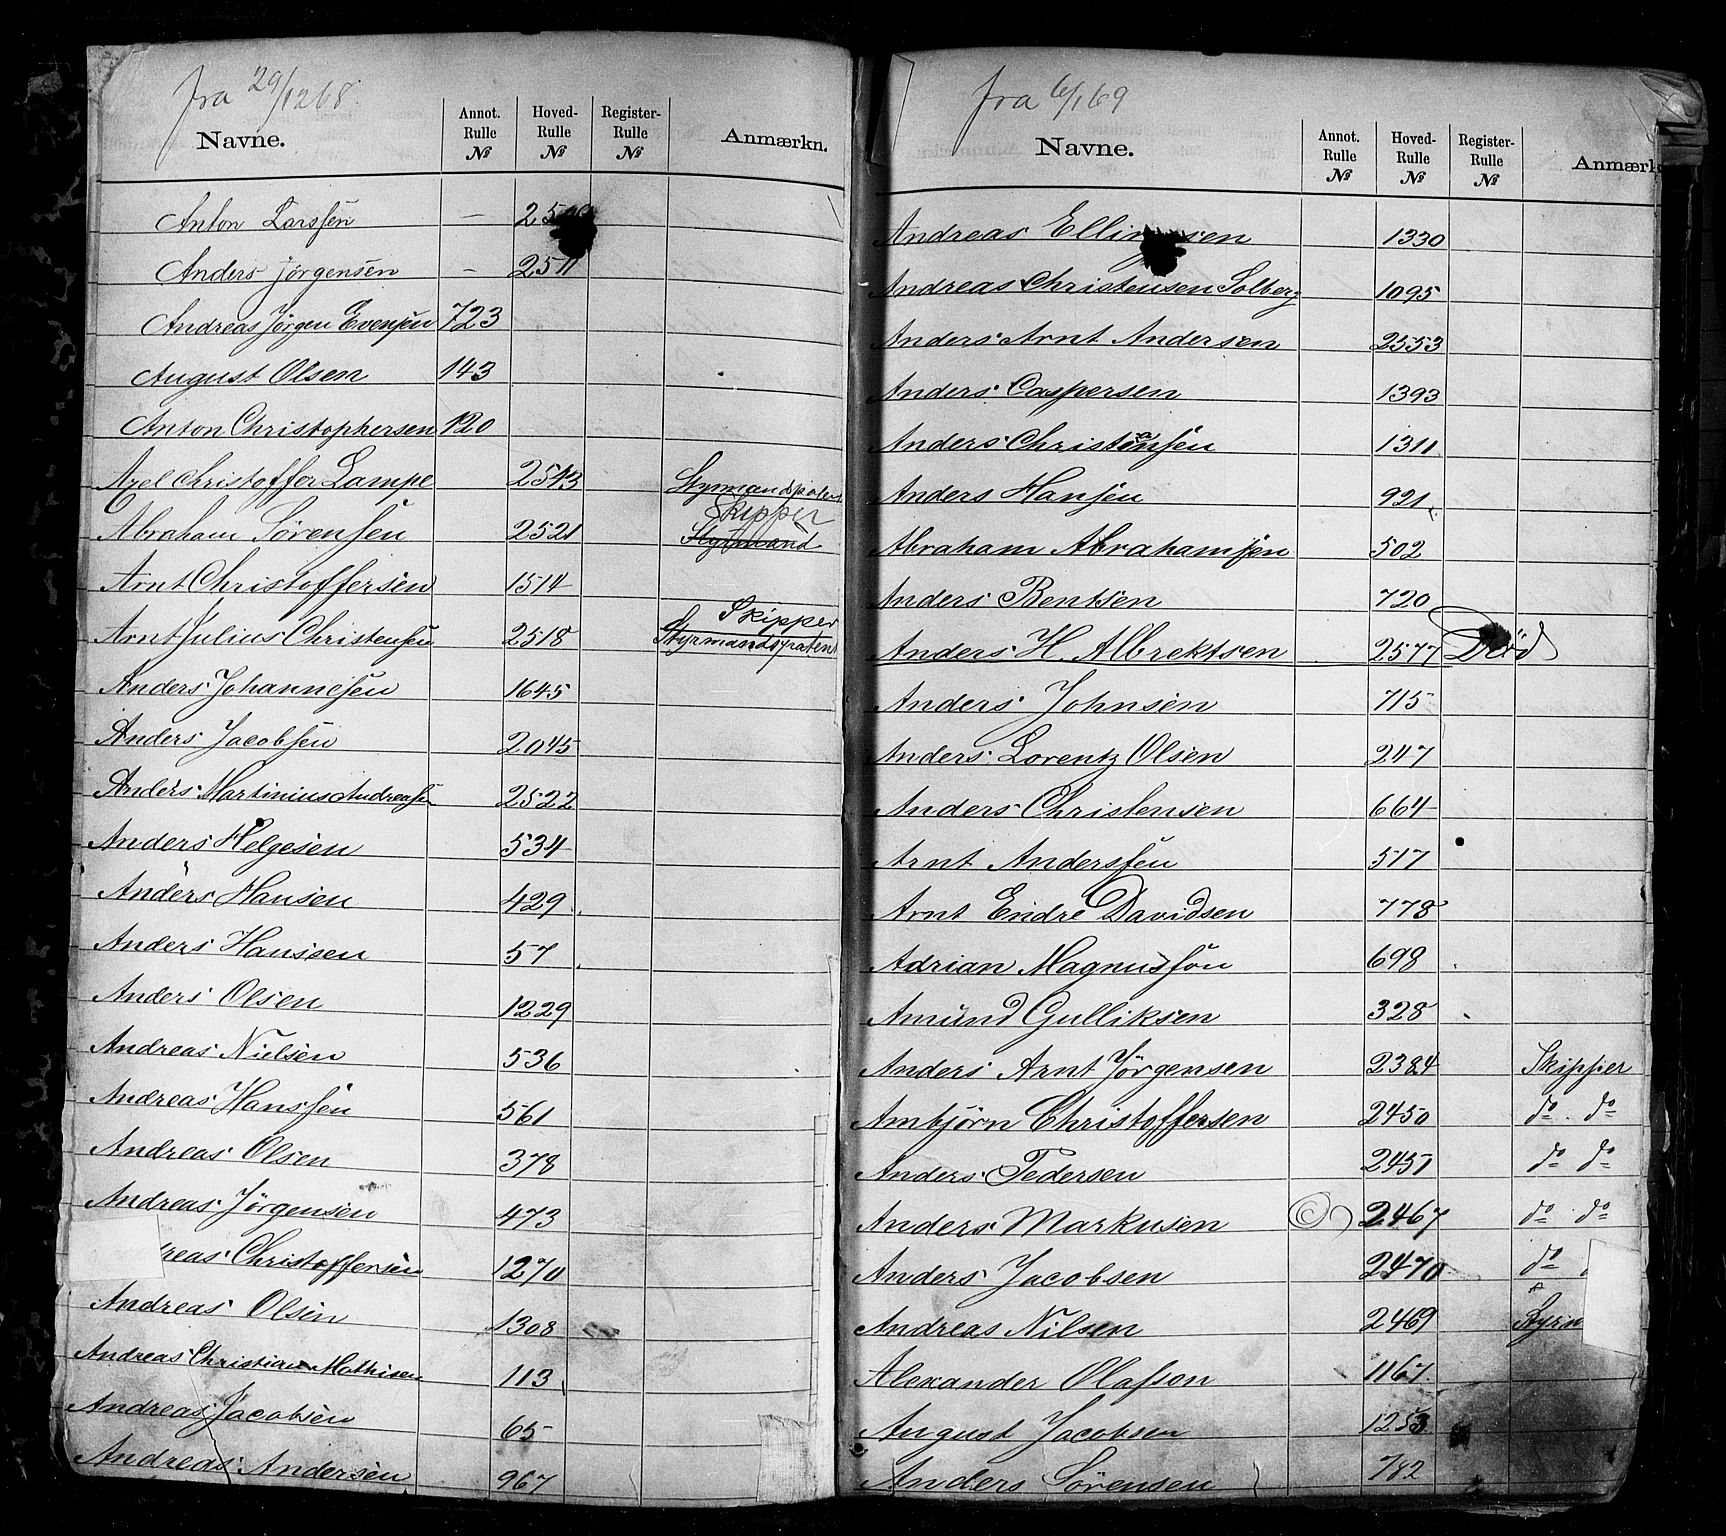 fra 29/12 68.
Navne. Annot. Rulle № Hoved-Rulle № Register-Rulle № Anmærkn.
Anton Larssen –
Anders Jörgensen – 2511
Andreas Jörgen Evensen 723
August Olsen 143
Anton Christophersen 120
Axel Christoffer Lampe 2543
Skipper
Abraham Sörensen 2521 Styrmand
Arnt Christoffersen 1514
Skipper
Arnt Julius Christensen 2518
Anders Johannesen 1645
Anders Jacobsen 2045
Anders Martinius Andreasen 2522
Anders Helgesen 534
Anders Hansen 429
Anders Hanssen 57
Anders Olsen 1229
Andreas Nielsen 536
Andreas Hanssen 561
Andreas Olsen 378
Andreas Jörgensen 473
reas Christoffersen 1270
Andreas Olsen 1308
Andreas Christian Mathisen 113
Andreas Jacobsen 65
Andreas Andersen 967
fra 6/1 69
Navne. Annot. Rulle № Hoved-Rulle № Register-Rulle № Anmærk
Andreas 1330
Andreas Christensen Solberg 1095
Anders Arnt Andersen 2553
Anders Caspersen 1393
Anders Christensen 1311
Anders Hansen 921
Abraham Abrahamsen 502
Anders Bentsen 720
Anders H. Albrektsen 2577 Död
Anders Johnsen 715
Anders Lorentz Olsen 247
Anders Christensen 664
Arnt Anderssen 517
Arnt Endre Davidsen 778
Adrian Magnussön 698
Amund Gulliksen 328
Anders Arnt Jörgensen 2384 Skipper
Ambjörn Christoffersen 2450 do do
Anders Pedersen 2451 do do
Anders Markusen 2467 do do
Anders Jacobsen 2470 do
Andreas Nilsen 2469 Styrm
Alexander Olafson 1167
August Jacobsen 1253
Anders Sörensen 782